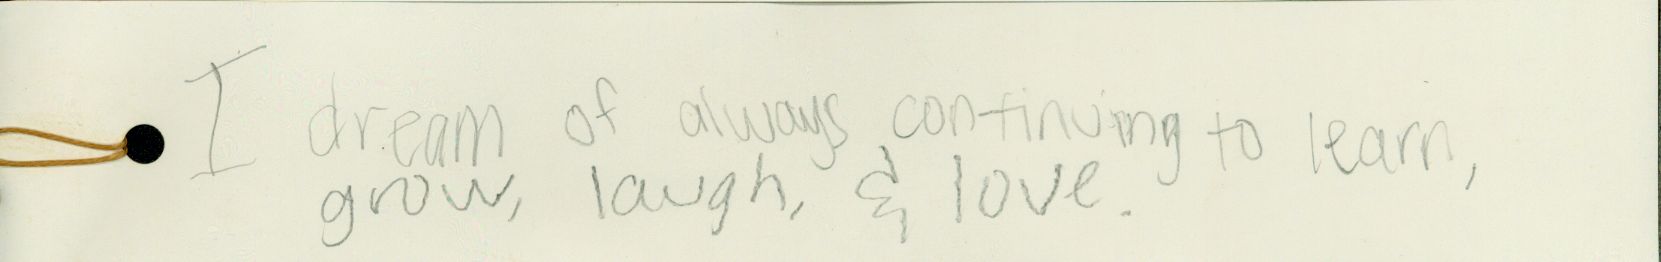 I dream of always continuing to learn,
grow, laugh, & love.